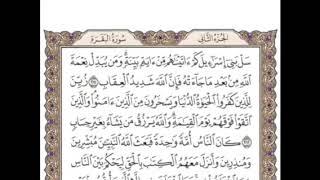 الجزء الثاني
سورة البقرة
سَلْ بَنِىٓ إِسْرَٰٓءِيلَ كَمْ ءَاتَيْنَٰهُم مِّنْ ءَايَةٍۭ بَيِّنَةٍ وَمَن يُبَدِّلْ نِعْمَةَ
ٱللَّهِ مِنۢ بَعْدِ مَا جَآءَتْهُ فَإِنَّ ٱللَّهَ شَدِيدُ ٱلْعِقَابِ ٢١١ زُيِّنَ
لِلَّذِينَ كَفَرُوا۟ ٱلْحَيَوٰةُ ٱلدُّنْيَا وَيَسْخَرُونَ مِنَ ٱلَّذِينَ ءَامَنُوا۟ وَٱلَّذِينَ
ٱتَّقَوْا۟ فَوْقَهُمْ يَوْمَ ٱلْقِيَٰمَةِ وَٱللَّهُ يَرْزُقُ مَن يَشَآءُ بِغَيْرِ حِسَابٍ
٢١٢ كَانَ ٱلنَّاسُ أُمَّةً وَٰحِدَةً فَبَعَثَ ٱللَّهُ ٱلنَّبِيِّۦنَ مُبَشِّرِينَ
وَمُنذِرِينَ وَأَنزَلَ مَعَهُمُ ٱلْكِتَٰبَ بِٱلْحَقِّ لِيَحْكُمَ بَيْنَ ٱلنَّاسِ